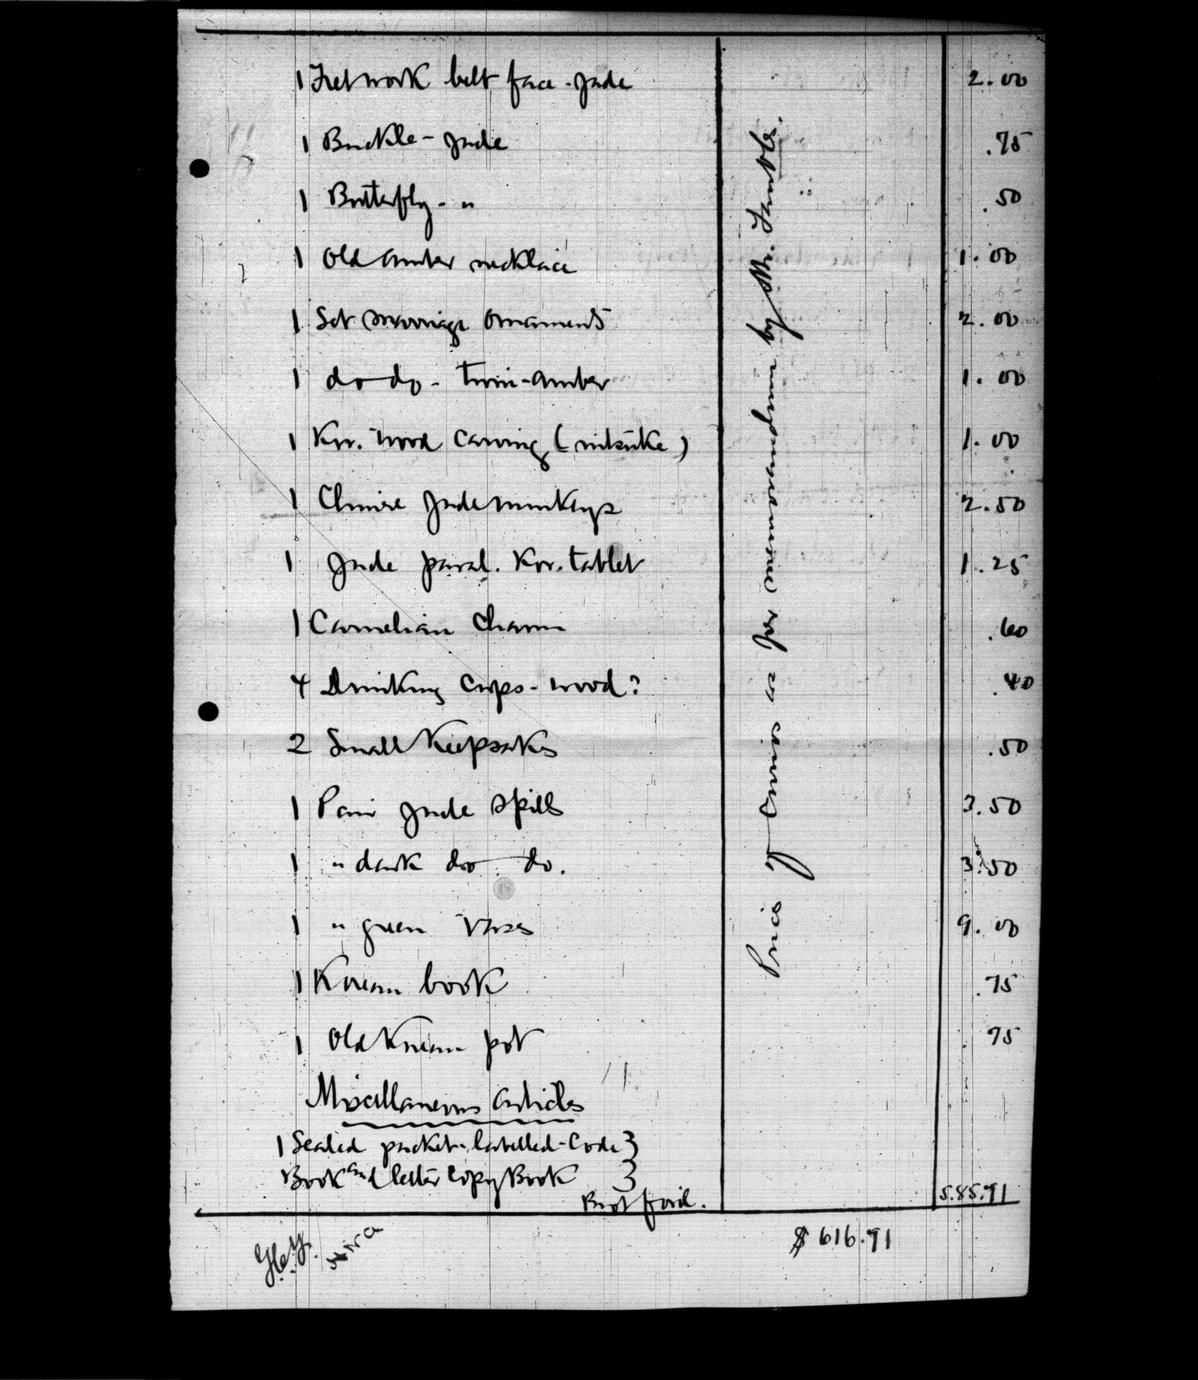 1 Fretwork belt face - jade 2.00
1 Buckle - jade .75
1 Butterfly - " .50
1 Old amber necklace 1.00
1 Set marriage ornaments 2.00
1 do do - twin - amber 1.00
1 Kor. wood carving (nitsuke) 1.00
1 Choice Jade monkeys 2.50
1 Jade paral. Kor. tablet 1.25
1 Carnelian Charm .60
4 Drinking cups - wood? .40
2 Small Keepsakes .50
1 Pair jade spills 3.50
1 " dark do do. 3.50
1 " green vases 9.00
1 Korean book .75
1 Old Korean pot 75
Price of Curios as per memorandum by Mr.
Miscellaneous articles
1 Sealed packet - labelled - Code }
Book and letter copy Book }
Brot ford. 585.91
$ 616.91